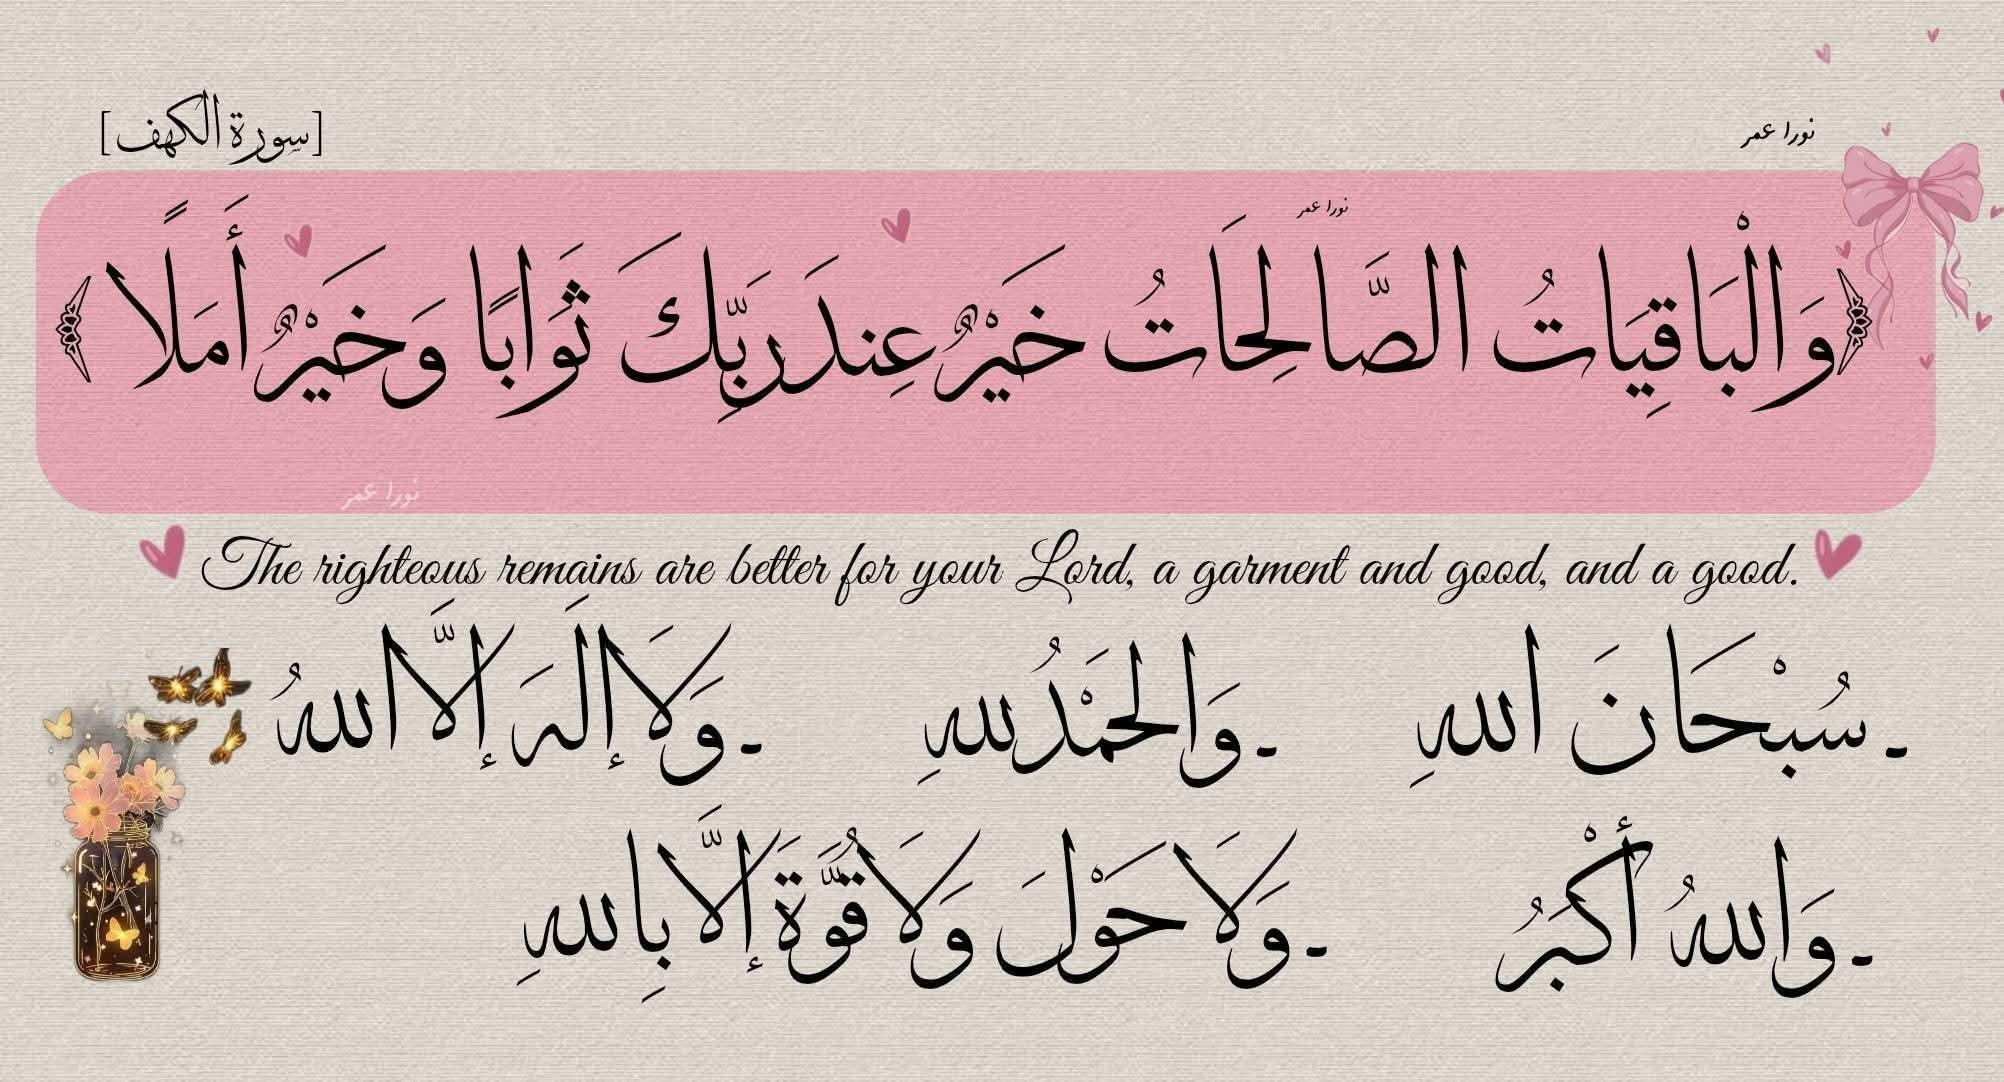 نورا عمر
[سورة الكهف]
نورا عمر
﴿وَالْبَاقِيَاتُ الصَّالِحَاتُ خَيْرٌ عِندَ رَبِّكَ ثَوَابًا وَخَيْرٌ أَمَلًا﴾
نورا عمر
The righteous remains are better for your Lord, a garment and good, and a good.
- سُبْحَانَ اللهِ - وَالحَمْدُ للهِ - وَلَا إِلَهَ إِلَّا اللهُ
- وَاللهُ أَكْبَرُ - وَلَا حَوْلَ وَلَا قُوَّةَ إِلَّا بِاللهِ